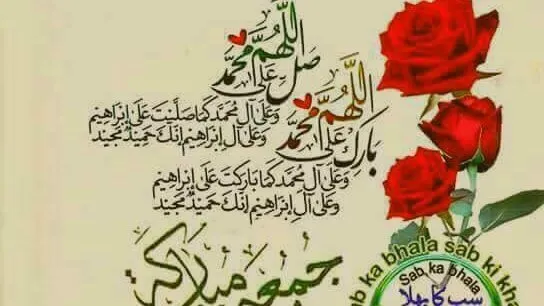 اللَّهُمَّ صَلِّ عَلَى مُحَمَّد
وَعَلَى آلِ مُحَمَّد كَمَا صَلَّيْتَ عَلَى إِبْرَاهِيْم
وَعَلَى آلِ إِبْرَاهِيْم إِنَّكَ حَمِيْدٌ مَجِيْد
اللَّهُمَّ بَارِكْ عَلَى مُحَمَّد
وَعَلَى آلِ مُحَمَّد كَمَا بَارَكْتَ عَلَى إِبْرَاهِيْم
وَعَلَى آلِ إِبْرَاهِيْم إِنَّكَ حَمِيْدٌ مَجِيْد
جمعة مباركة
ka bhala sab ki kh
Sab ka bhala
سب کا بھلا